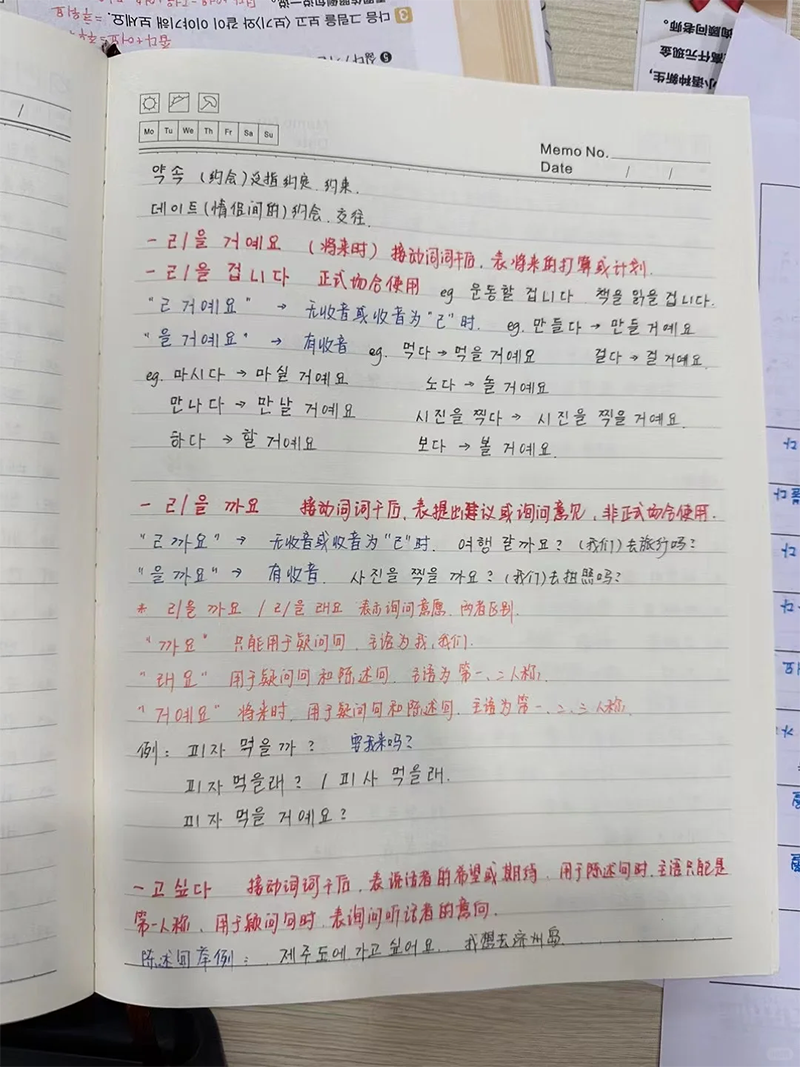 3 다음 그림을 보고 〈보기〉와 같이 이야기해 보세요.
小语种新生,
Mo Tu We Th Fr Sa Su
Memo No.
Date / /
약속 (约会)泛指约定、约束.
데이트(情侣间的)约会、交往.
-ㄹ/을 거예요 (将来时) 接动词词干后,表将来的打算或计划.
-ㄹ/을 겁니다 正式场合使用 eg 운동할 겁니다 책을 읽을 겁니다.
"ㄹ 거예요" → 无收音或收音为"ㄹ"时. eg. 만들다 → 만들 거예요
"을 거예요" → 有收音 eg. 먹다 → 먹을 거예요 걸다 → 걸 거예요.
eg. 마시다 → 마실 거예요 노다 → 놀 거예요
만나다 → 만날 거예요 시진을 찍다 → 시진을 찍을 거예요.
하다 → 할 거예요 보다 → 볼 거예요.
-ㄹ/을 까요 接动词词干后,表提出建议或询问意见,非正式场合使用.
"ㄹ 까요" → 无收音或收音为"ㄹ"时. 여행 갈까요? (我们)去旅行吗?
"을 까요" → 有收音. 사진을 찍을 까요? (我们)去拍照吗?
* ㄹ/을 까요 / ㄹ/을 래요 表示询问意愿、两者区别.
"까요" 只能用于疑问句、主语为我,我们.
"래요" 用于疑问句和陈述句、主语为第一、二人称.
"거예요" 将来时、用于疑问句和陈述句、主语为第一、二、三人称.
例: 피자 먹을까?
피자 먹을래? / 피사 먹을래.
피자 먹을 거예요?
-고 싶다 接动词词干后,表诉话者的希望或期待、用于陈述句时,主语只能是
第一人称、用于疑问句时、表询问听话者的意向.
陈述句举例: 제주도에 가고 싶어요. 我想去济州岛